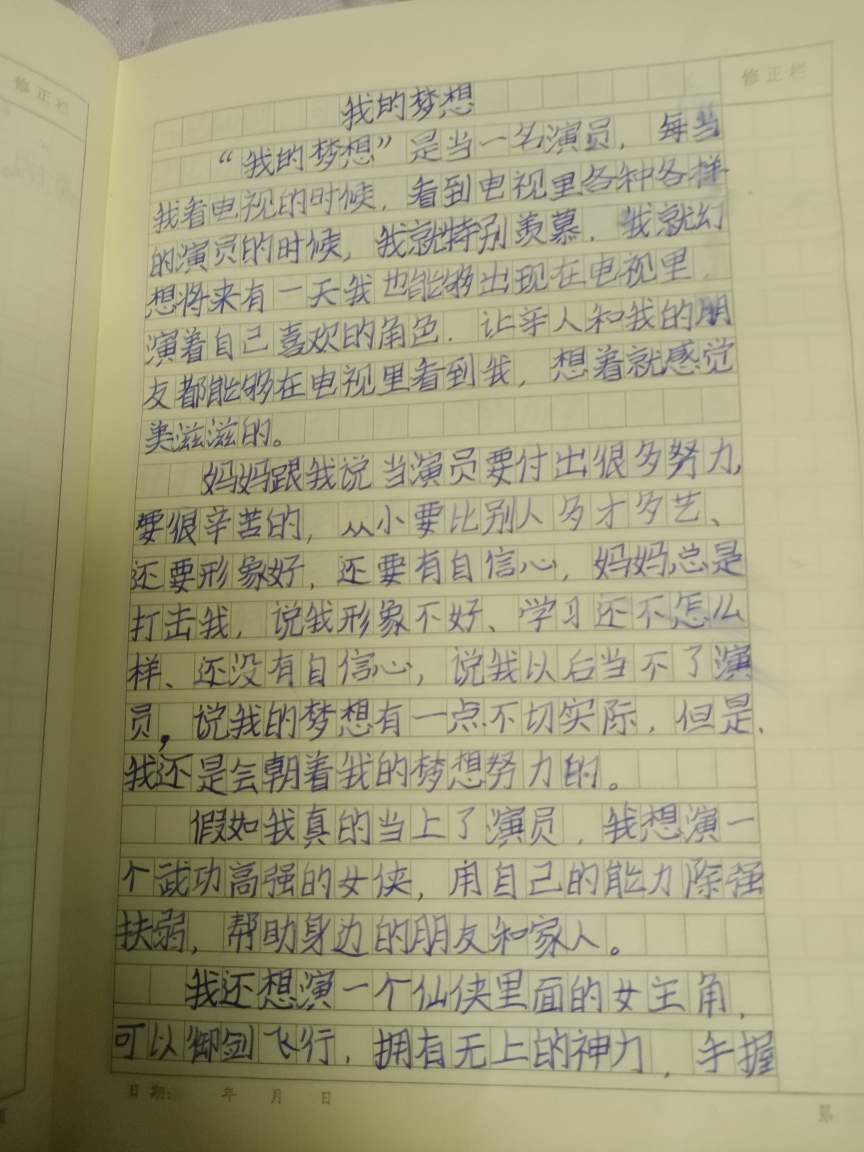 修正栏
修正栏
我的梦想
“我的梦想”是当一名演员，每当
我看电视的时候，看到电视里各种各样
的演员的时候，我就特别羡慕，我就幻
想将来有一天我也能够出现在电视里，
演着自己喜欢的角色，让家人和我的朋
友都能够在电视里看到我，想着就感觉
美滋滋的。
妈妈跟我说当演员要付出很多努力，
要很辛苦的，从小要比别人多才多艺、
还要形象好，还要有自信心，妈妈总是
打击我，说我形象不好、学习还不怎么
样、还没有自信心，说我以后当不了演
员，说我的梦想有一点不切实际，但是，
我还是会朝着我的梦想努力的。
假如我真的当上了演员，我想演一
个武功高强的女侠，用自己的能力除强
扶弱，帮助身边的朋友和家人。
我还想演一个仙侠里面的女主角，
可以御剑飞行，拥有无上的神力，手握
日期： 年 月 日
第